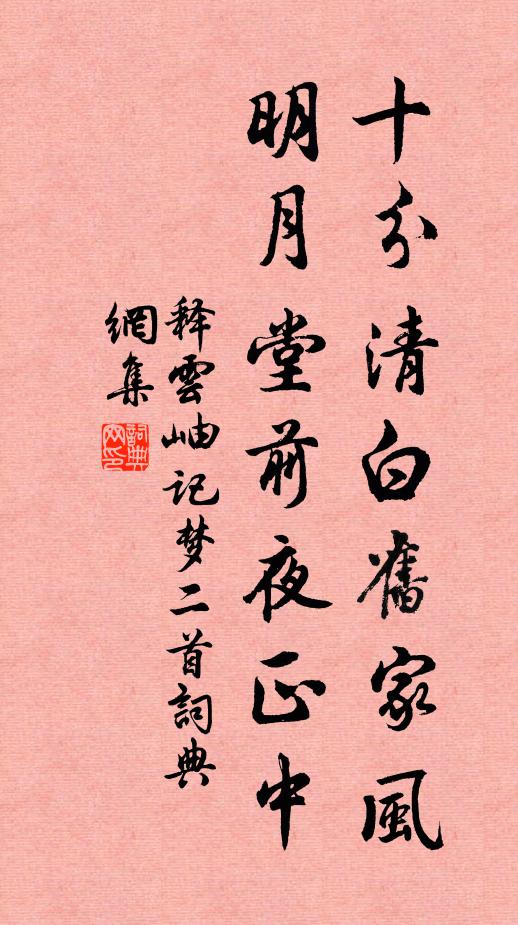 十分清白舊家風
明月堂前夜正中
释雲岫记梦二首詞典
網集
詞典
网印